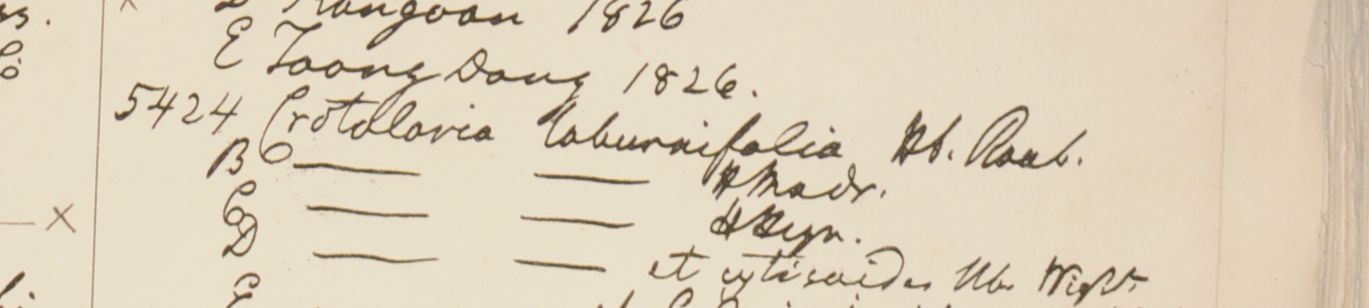 Rangoon 1826
E Toong Dong 1826.
5424 Crotolaria laburnifolia Hb. Roxb.
B — — H Madr.
C — — H Heyn.
D — — et cytisoides Hb. Wight
E